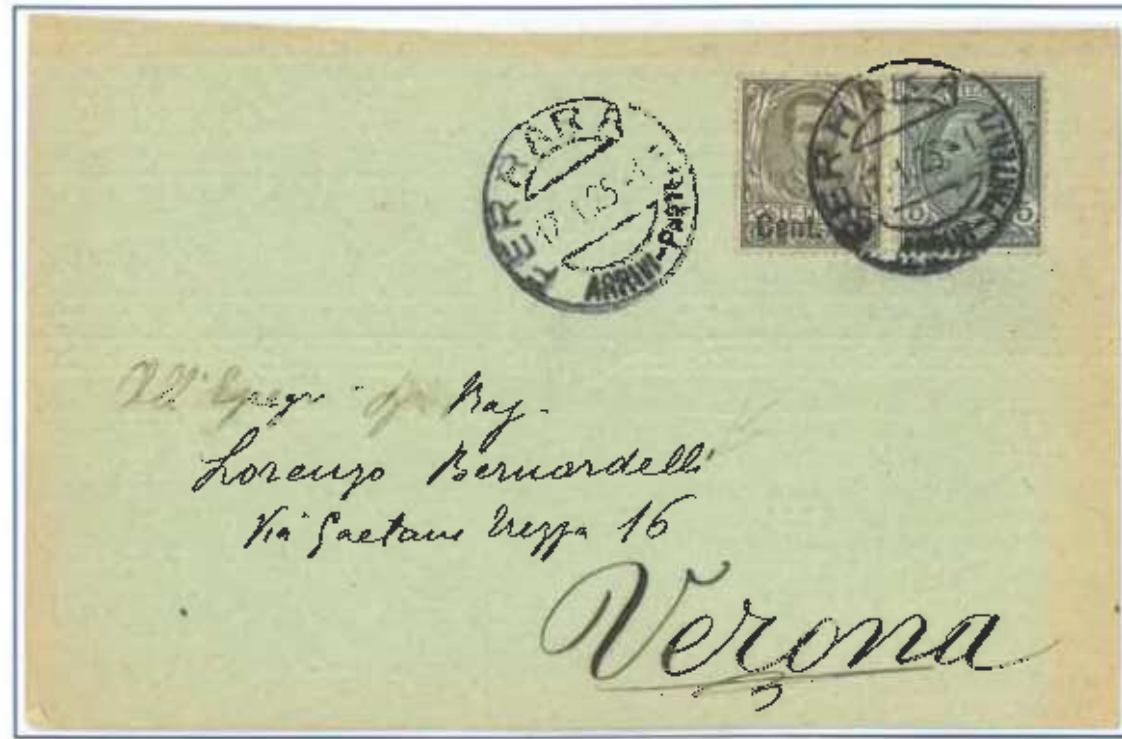 FERRARA
17.1.25
ARRIVI-PARTENZE
Cent. 5
5 5
FERRARA
ARRIVI PARTENZE
All' Egregio Rag.
Lorenzo Bernardelli
Via Gaetano Trezza 16
Verona